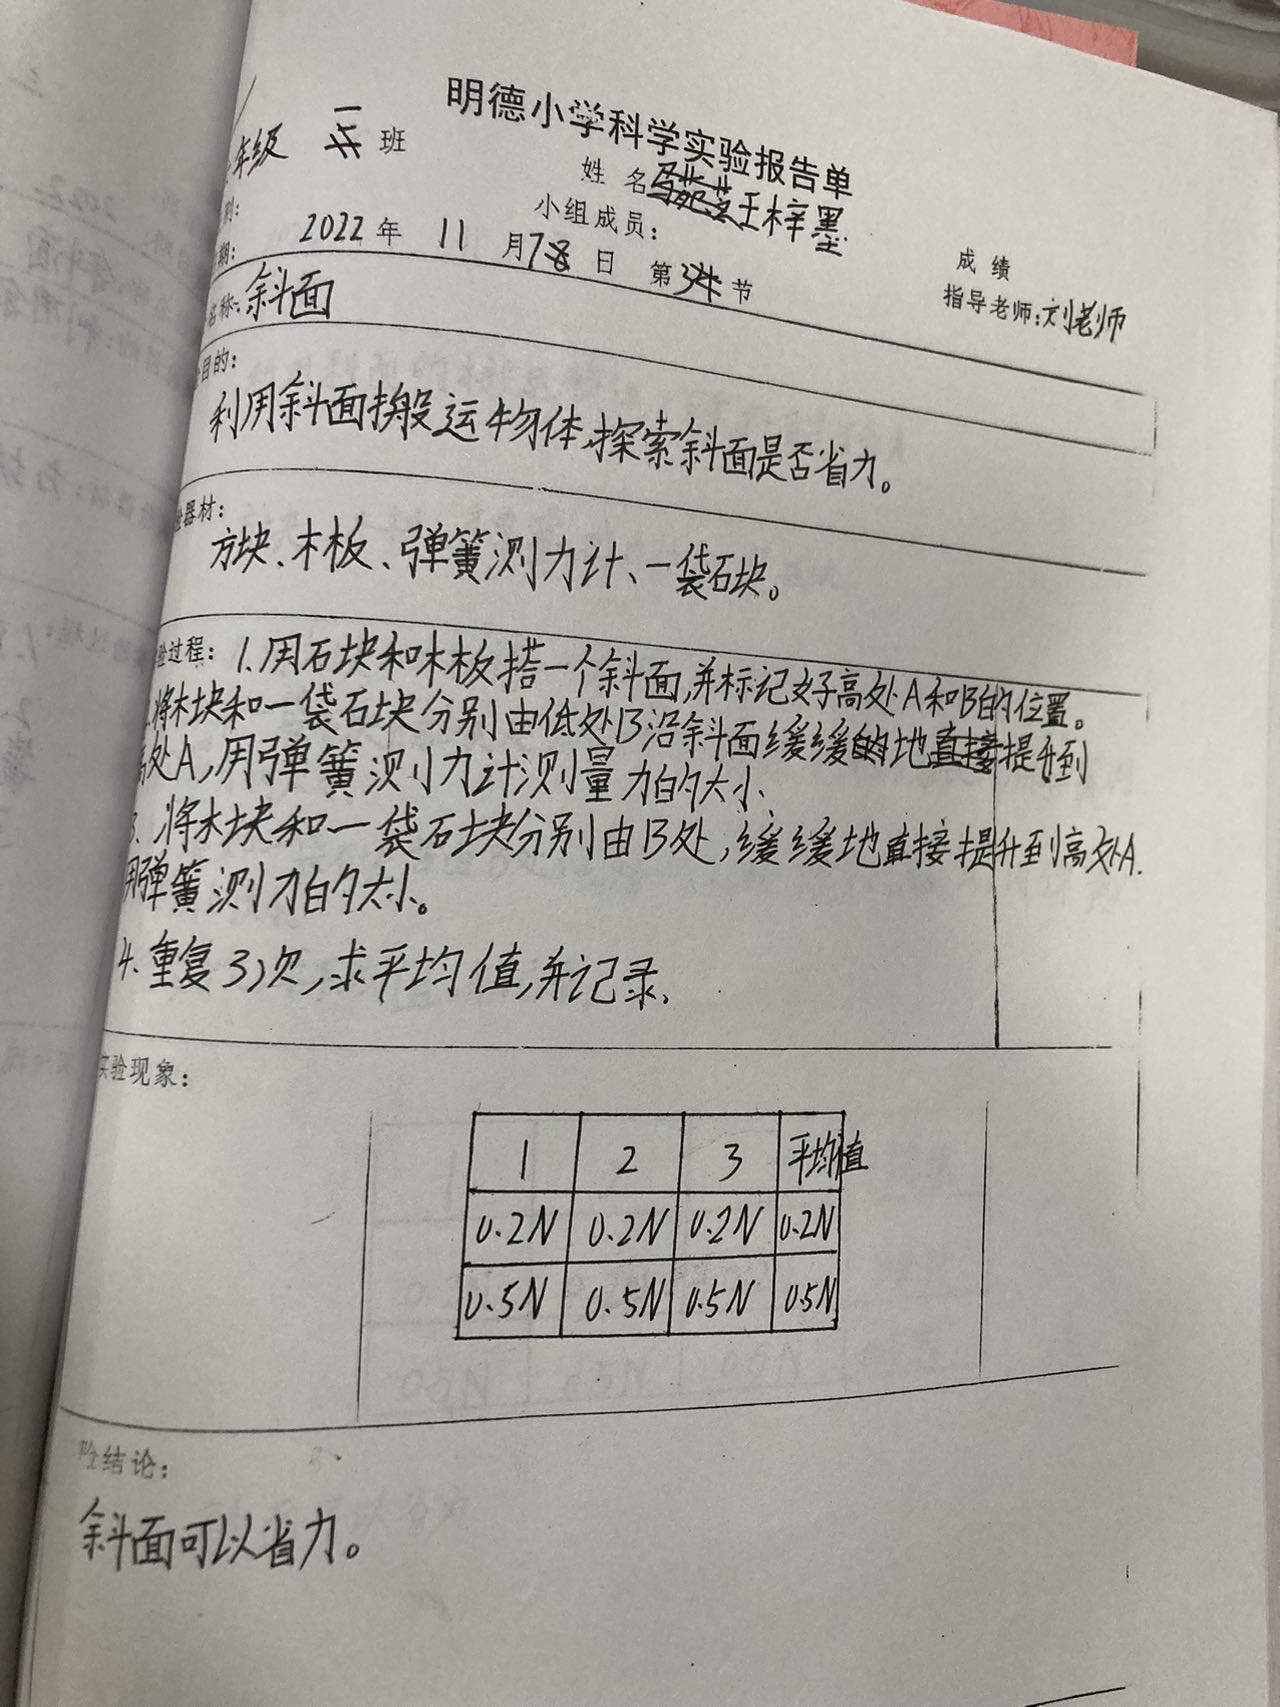 明德小学科学实验报告单
年级 一 班
姓名 王梓墨
小组成员：
成绩
别：
期： 2022年 11 月7日 第3节
指导老师：刘老师
名称：斜面
目的：
利用斜面搬运物体,探索斜面是否省力。
验器材：
方块、木板、弹簧测力计、一袋石块。
验过程： 1.用石块和木板搭一个斜面,并标记好高处A和B的位置。
将木块和一袋石块分别由低处B沿斜面缓缓的地直接提升到
高处A,用弹簧测力计测量力的大小、
3、将木块和一袋石块分别由B处,缓缓地直接提升到高处A.
用弹簧测力的大小。
4.重复3次,求平均值,并记录、
实验现象：
1 2 3 平均值
0.2N 0.2N 0.2N 0.2N
0.5N 0.5N 0.5N 0.5N
验结论：
斜面可以省力。